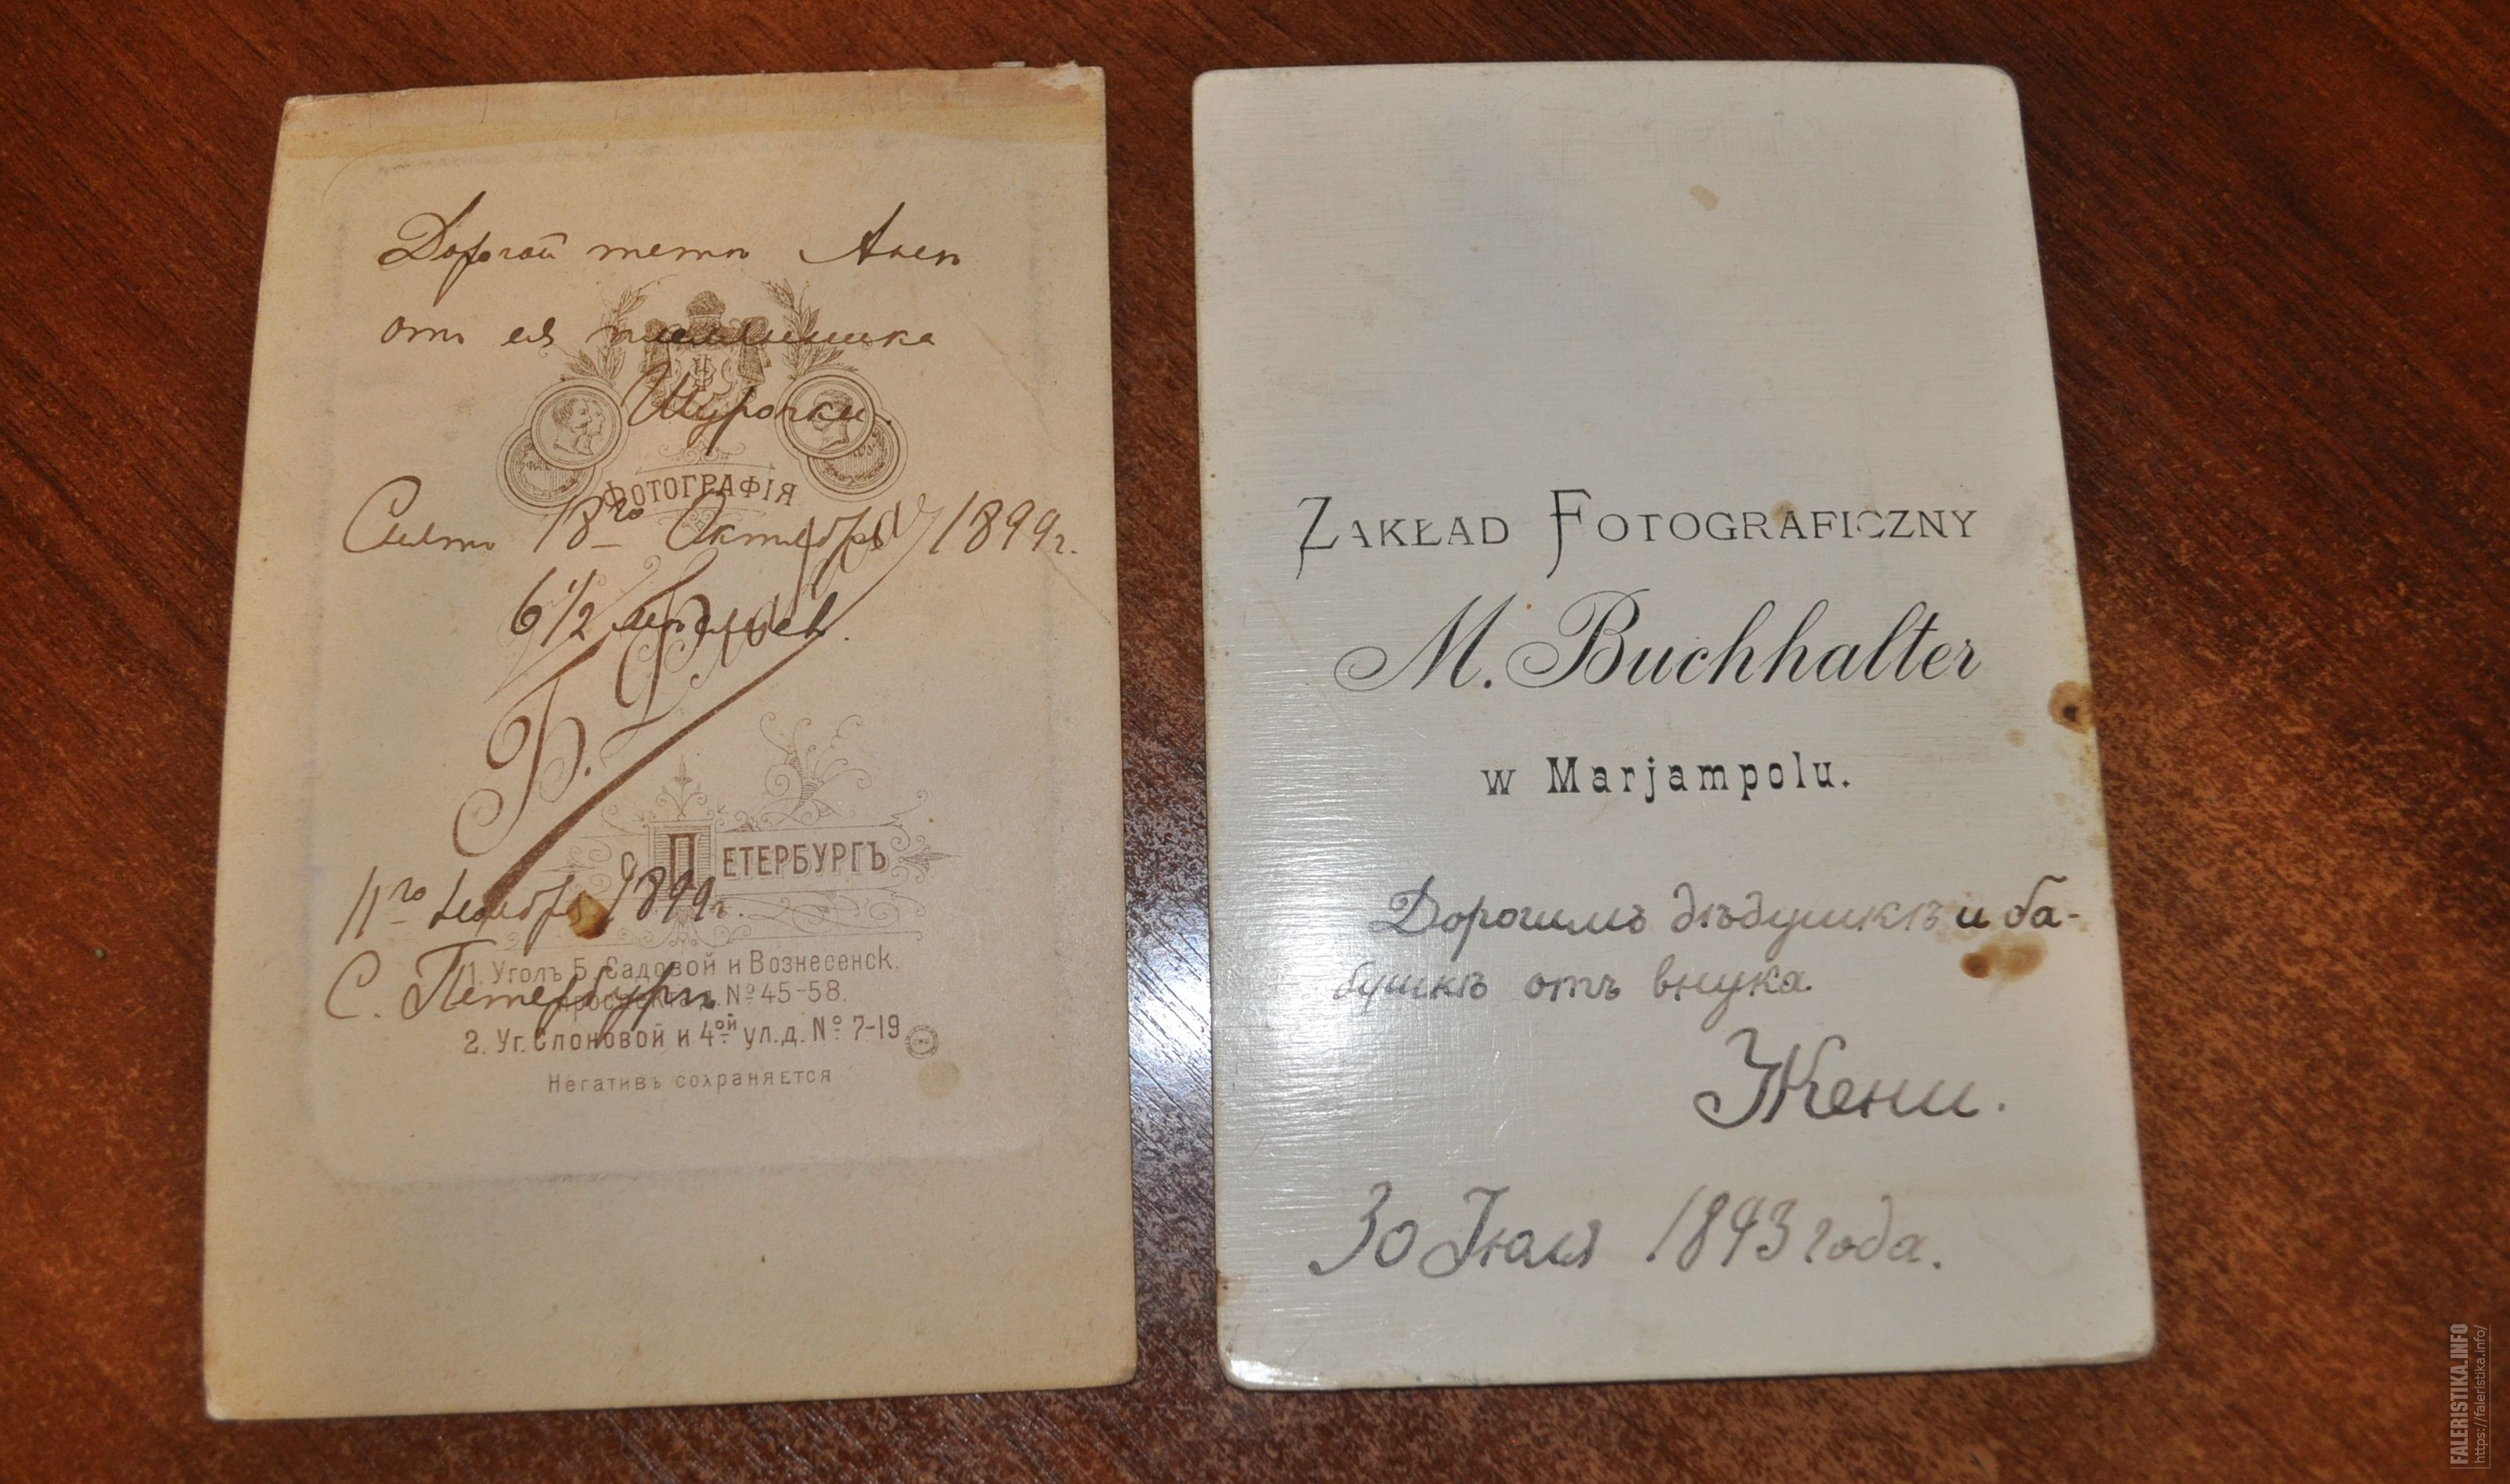 Дорогой тетѣ Анѣ
отъ ея племянника
Шурочки.
ФОТОГРАФІЯ
Снятъ 18го Октября 1899г.
6 1/2 мѣсяцев.
Б.
11го Ноября 1899г.
С. ПЕТЕРБУРГЪ
С. Петербургъ
1. Уголъ Б. Садовой и Вознесенск.
проспекта д. № 45-58.
2. Уг. Слоновой и 4ой ул. д. № 7-19
Негативъ сохраняется
ZAKŁAD FOTOGRAFICZNY
M. Buchhalter
w Marjampolu.
Дорогимъ дѣдушкѣ и ба-
бушкѣ отъ внука
Жени.
30 Іюля 1893 года.
FALERISTIKA.INFO
https://faleristika.info/